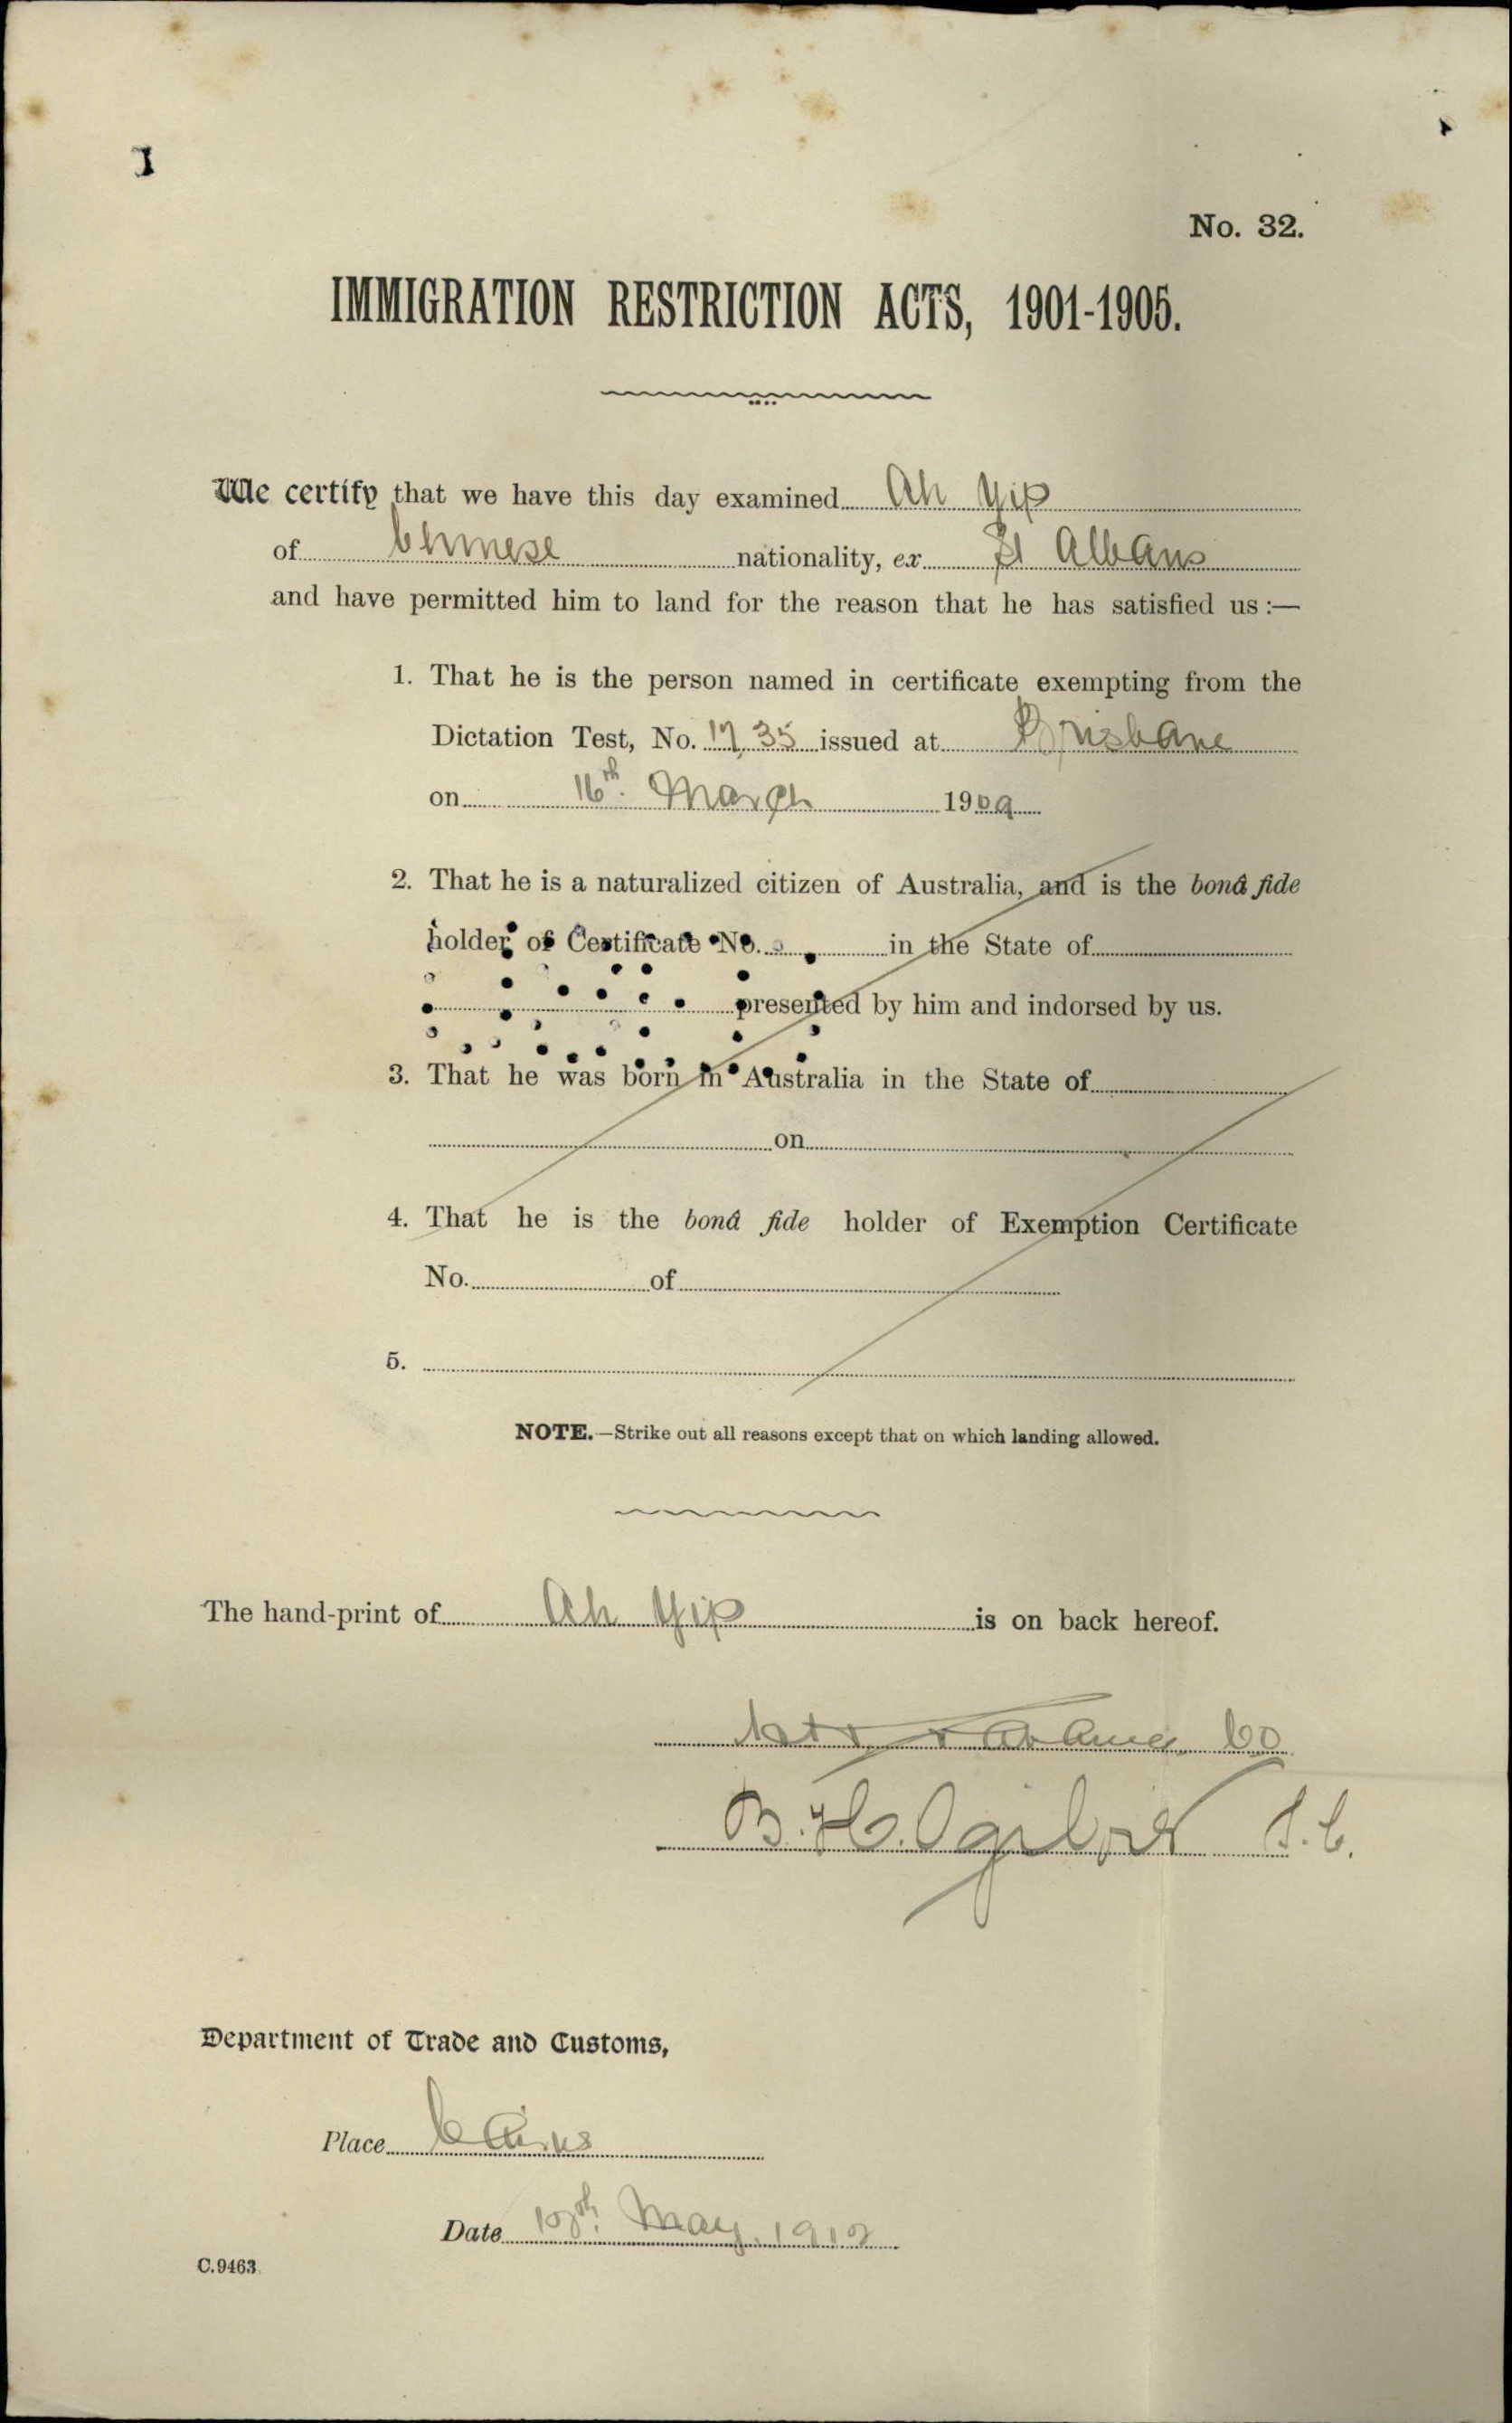 No. 32.
IMMIGRATION RESTRICTION ACTS, 1901-1905.
We certify that we have this day examined Ah Yip
of Chinese nationality, ex St Albans
and have permitted him to land for the reason that he has satisfied us :—
1. That he is the person named in certificate exempting from the
Dictation Test, No. issued at Brisbane
on 16th. March 1909
2. That he is a naturalized citizen of Australia, and is the bonâ fide
holder of Certificate No. in the State of
presented by him and indorsed by us.
3. That he was born in Australia in the State of
on
4. That he is the bonâ fide holder of Exemption Certificate
No. of
5.
NOTE.—Strike out all reasons except that on which landing allowed.
The hand-print of Ah Yip is on back hereof.
B. H. Ogilvie
Department of Trade and Customs,
Place Cairns
Date May. 1912
C.9463.